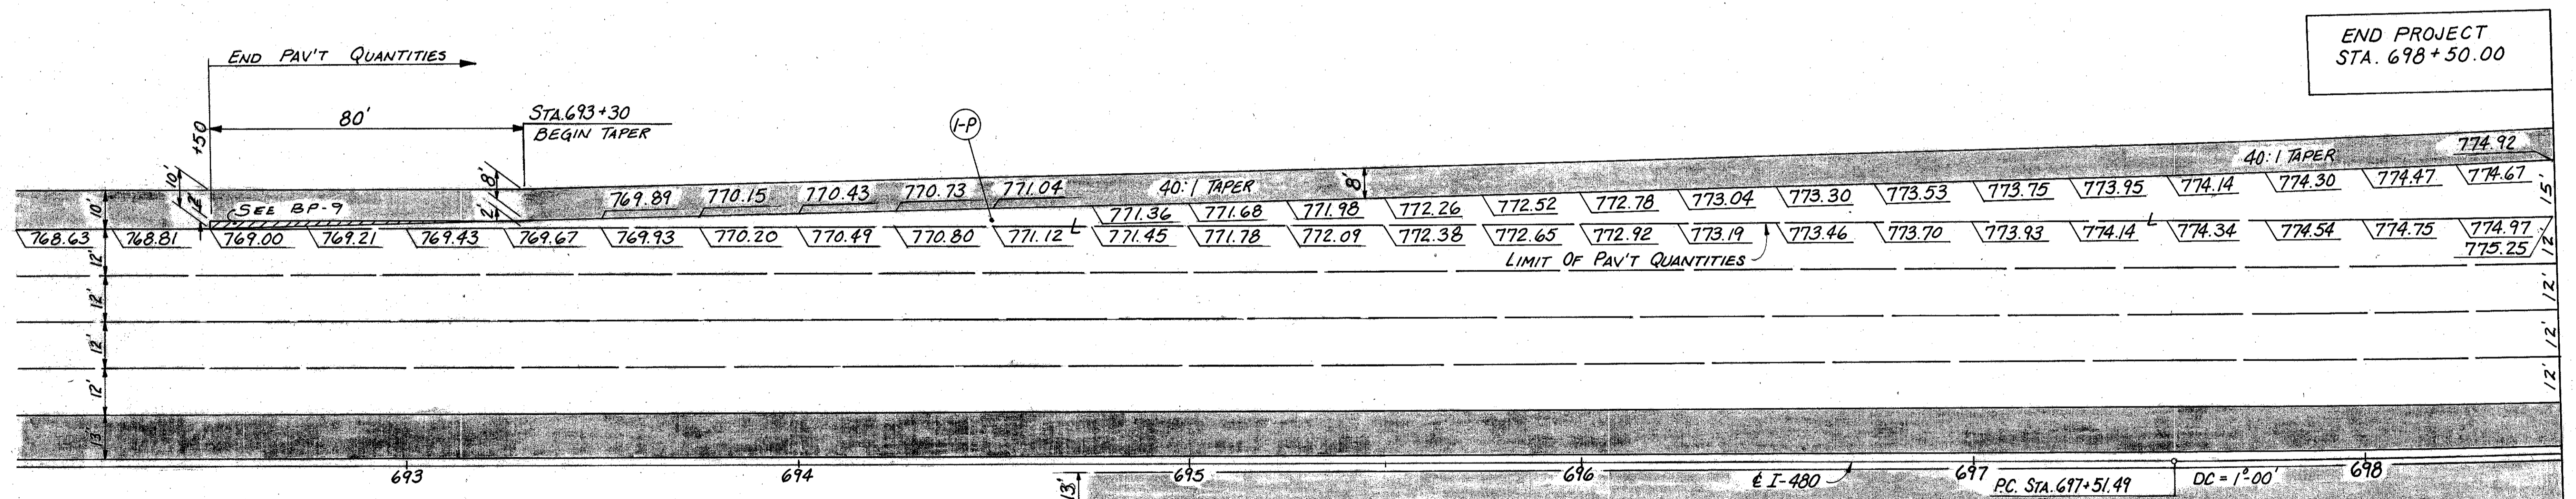 END PROJECT
STA. 698+50.00
END PAV'T QUANTITIES
80'
STA.693+30
BEGIN TAPER
+50
10'
2'
8'
2'
1-P
10'
SEE BP-9
769.89 770.15 770.43 770.73 771.04
40:1 TAPER
8'
40:1 TAPER
774.92
771.36 771.68 771.98 772.26 772.52 772.78 773.04 773.30 773.53 773.75 773.95 774.14 774.30 774.47 774.67
15'
768.63 768.81 769.00 769.21 769.43 769.67 769.93 770.20 770.49 770.80 771.12 L 771.45 771.78 772.09 772.38 772.65 772.92 773.19 773.46 773.70 773.93 774.14 L 774.34 774.54 774.75 774.97
775.25
LIMIT OF PAV'T QUANTITIES
12' 12'
12' 12'
12' 12'
12' 12'
13'
693 694 695 696 697 698
13'
℄ I-480
P.C. STA.697+51.49
DC = 1°-00'